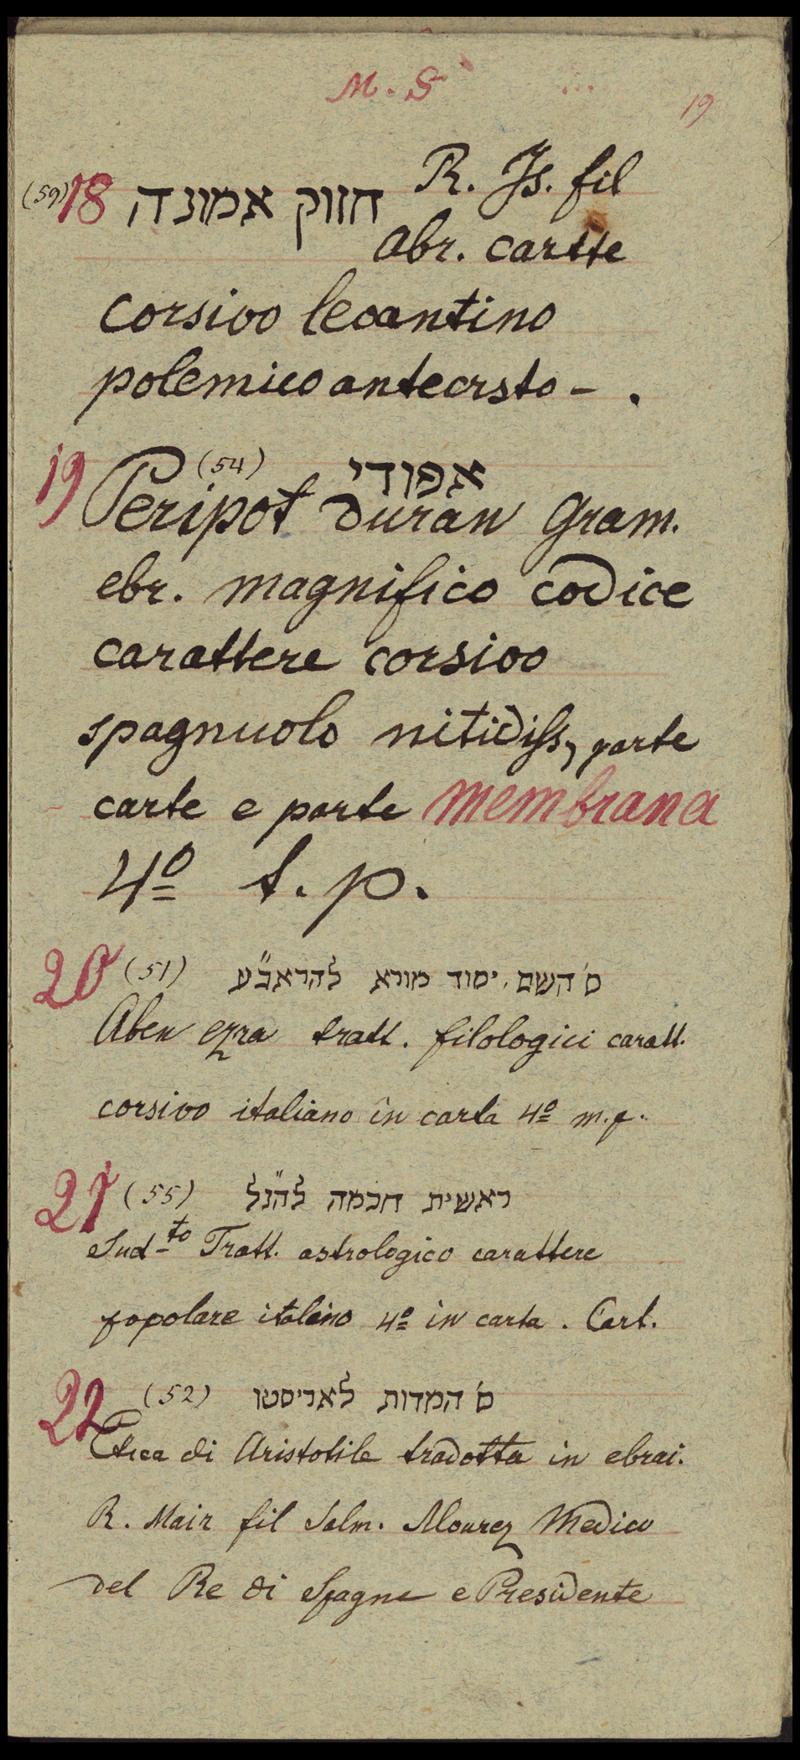 M. S
19
(59) 18 חזוק אמונה R. Js. fil
abr. cartte
corsivo levantino
polemico antecrsto - .
19 (54) אפודי
Peripot duran Gram.
ebr. magnifico codice
carattere corsivo
spagnuolo nitidiss, parte
carte e parte membrana
4º t. p.
20 (51) ס' השם, יסוד מורא להראב״ע
Aben ezra tratt. filologici caratt.
corsivo italiano in carta 4º m.f.
21 (55) ראשית חכמה להנ״ל
Sudto Tratt. astrologico carattere
popolare italino 4º in carta. Cart.
22 (52) ס' המדות לאריסטו
Etica di Aristotile tradotta in ebrai.
R. Mair fil Salm. Alourez Medico
del Re di Spagna e Presidente